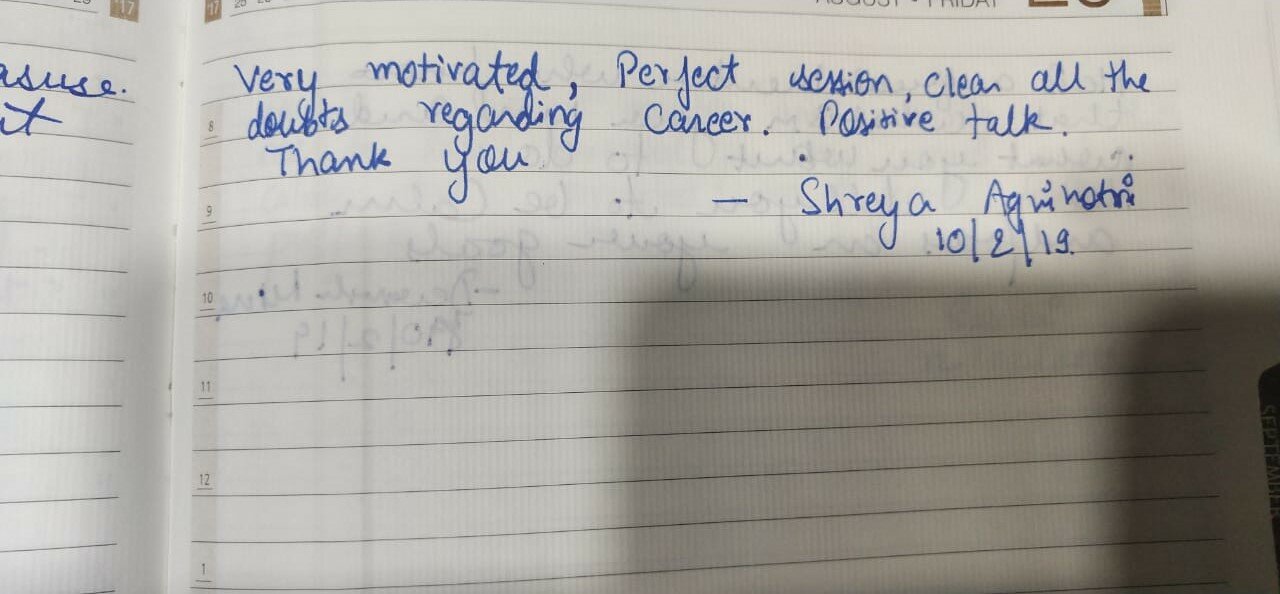 asuse.
it
17
17
AUGUST - FRIDAY
Very motivated, Perfect session, clear all the
8 doubts regarding Career. Positive talk.
Thank you
9 — Shreya Agnihotri
10/2/19.
10
11
12
1
SEPTEMBER